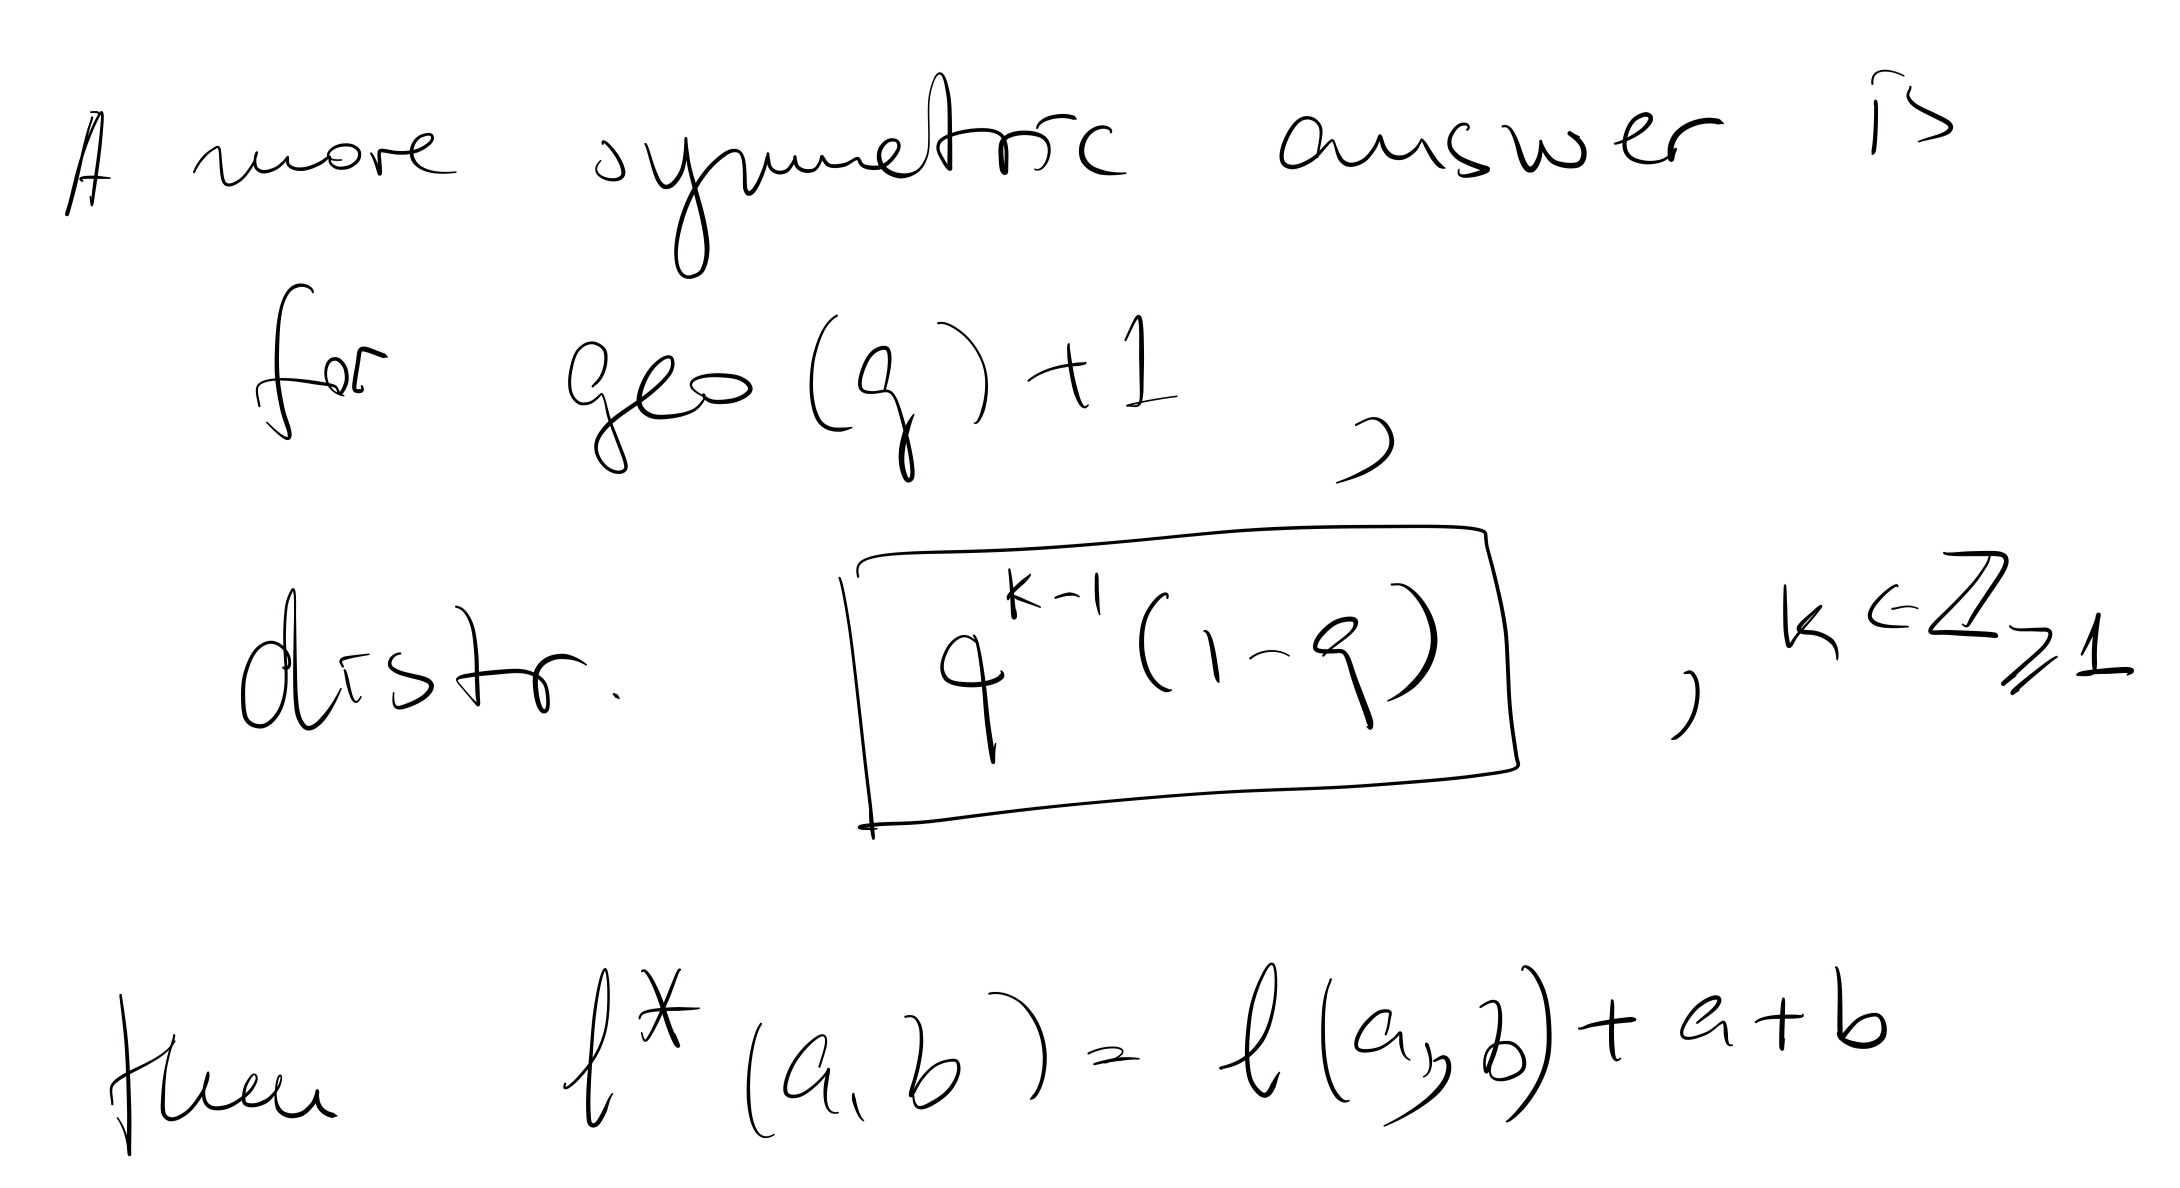 A more symmetric answer is
for geo(q)+1 ,
distr. q^{k-1}(1-q) , k∈ℤ_{⩾1}
then l*(a,b) = l(a,b)+a+b